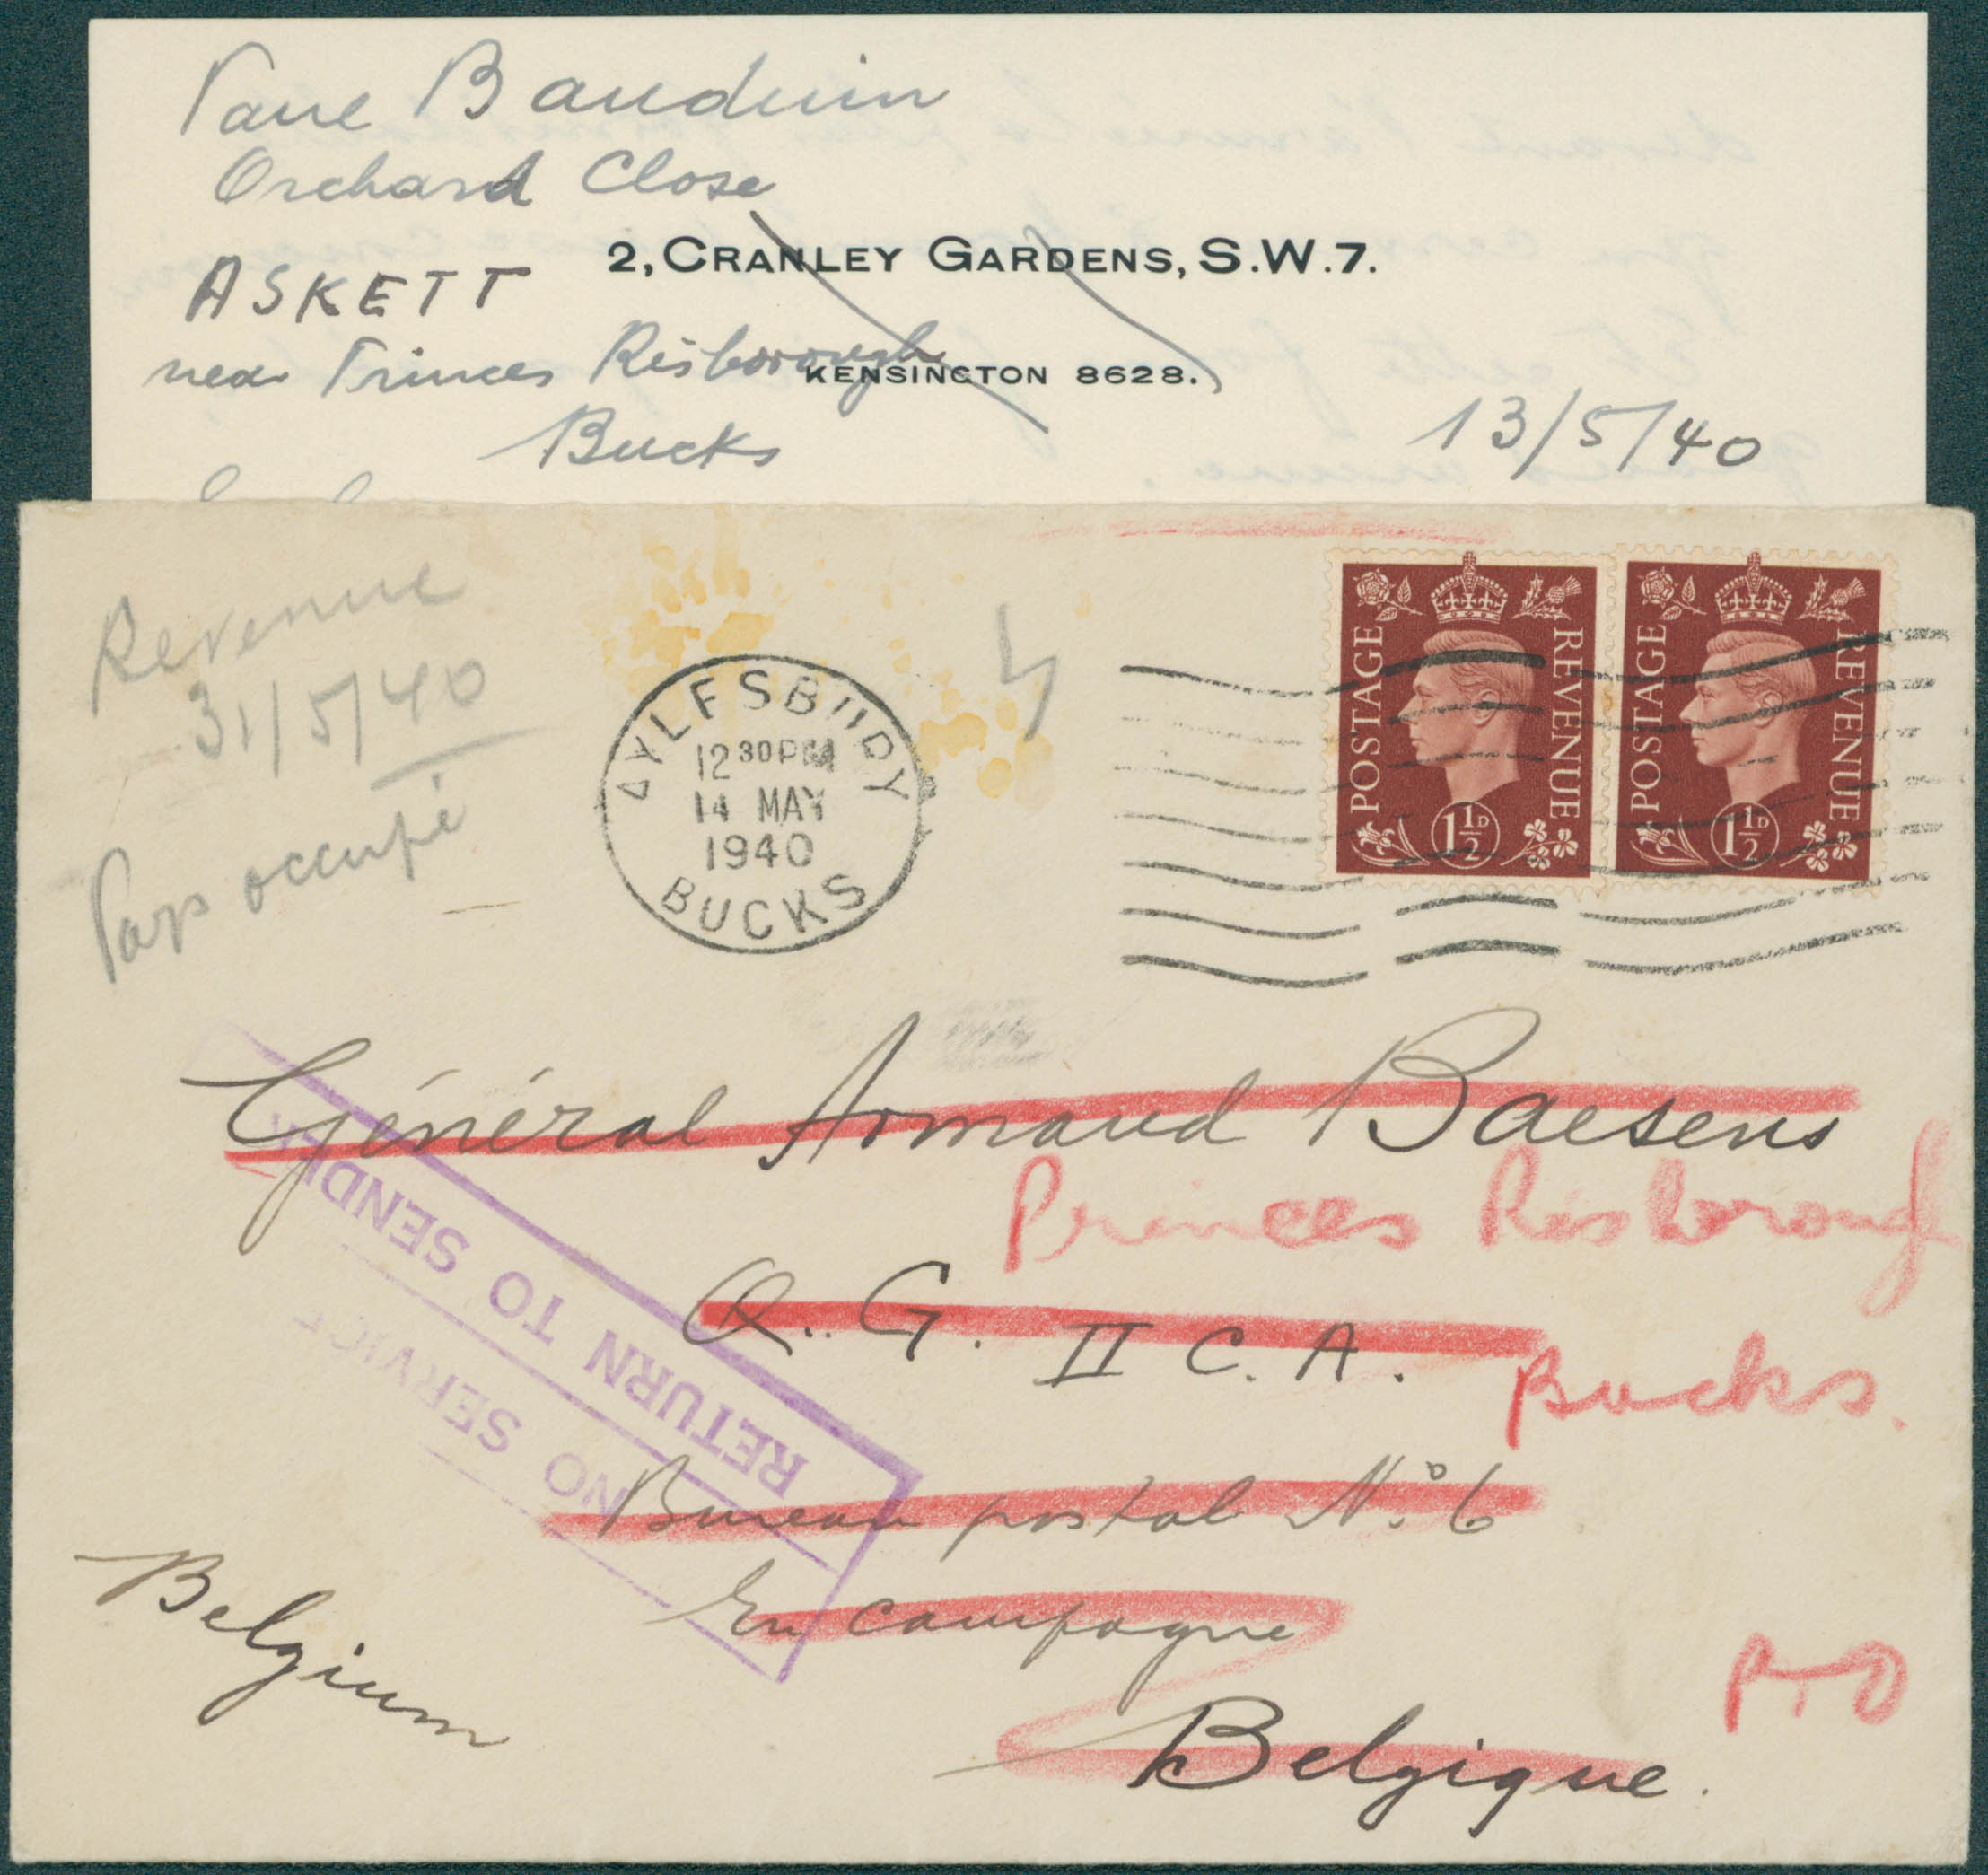 Paul Bauduin
Orchard Close
2, CRANLEY GARDENS, S.W.7.
ASKETT
near Princes Risborough
KENSINGTON 8628.
Bucks
13/5/40
Revenue
31/5/40
Pays occupé
AYLESBURY
12 30 PM
14 MAY
1940
BUCKS
POSTAGE REVENUE
1½D
POSTAGE REVENUE
1½D
Général Armand Baesens
Princes Risborough
Q. G. II C. A.
Bucks.
NO SERVICE
RETURN TO SENDER
Bureau postal No. 6
En campagne
Belgium
PTO
Belgique.